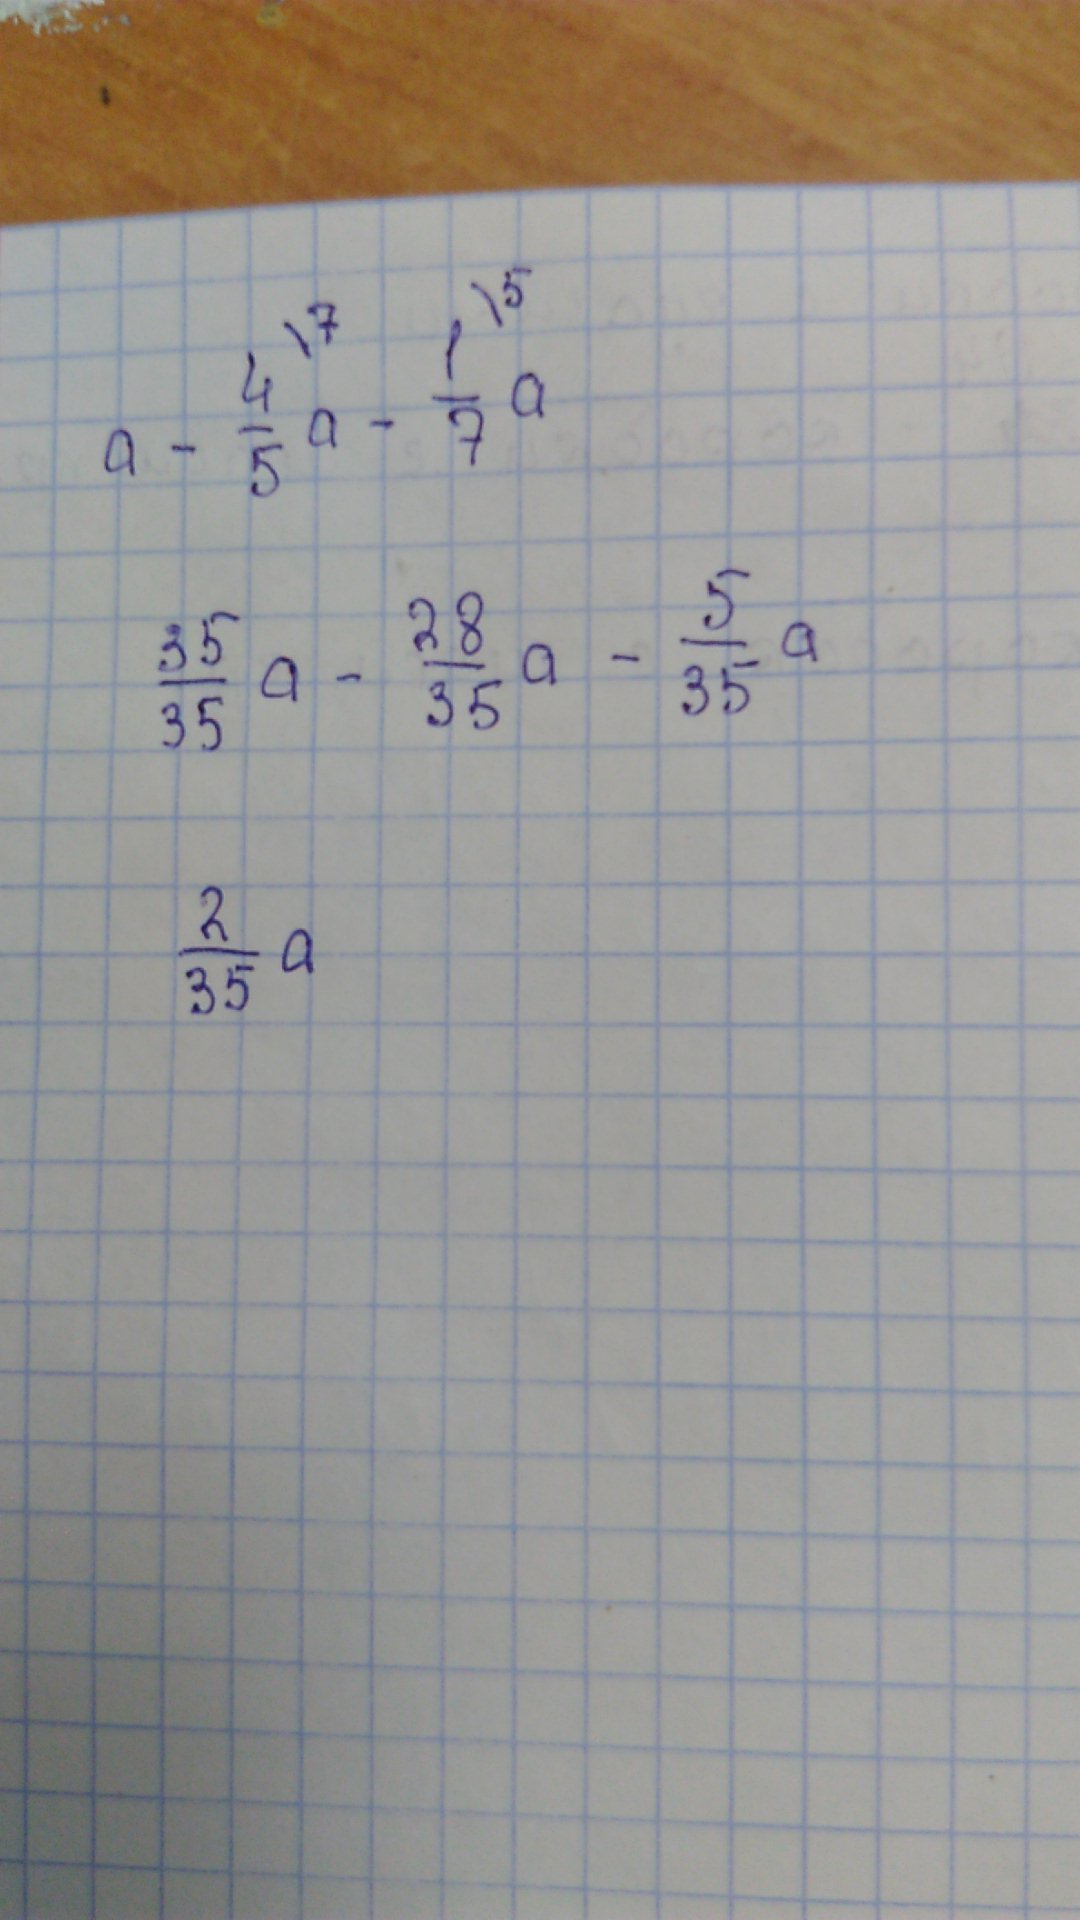 a - 4/5 \7 a - 1/7 \5 a
35/35 a - 28/35 a - 5/35 a
2/35 a